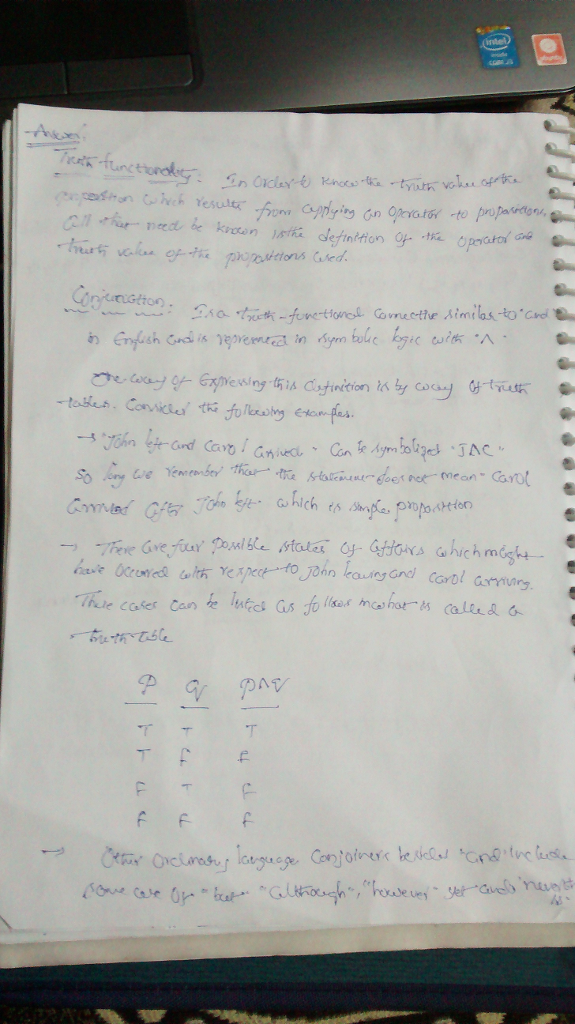 intel
inside
CORE i5
Answer:
Truth functionality: In order to know the truth value of the
proposition which results from applying an operator to propositions,
all that need be known is the definition of the operator and
truth value of the propositions used.
Conjunction: Is a truth-functional connective similar to "and"
in English and is represented in symbolic logic with "∧"
One way of Expressing this definition is by way of truth
tables. Consider the following examples.
→ "John left and Carol arrived" Can be symbolized "J∧C"
so long we remember that the statement does not mean "Carol
arrived after John left" which is simple proposition
→ There are four possible states of affairs which might
have occurred with respect to John leaving and carol arriving.
These cases can be listed as follows in what is called a
truth table
P Q P∧Q
T T T
T F F
F T F
F F F
→ Other Ordinary language Conjoiners besides "and" include
some use of "but" "although", "however" yet and